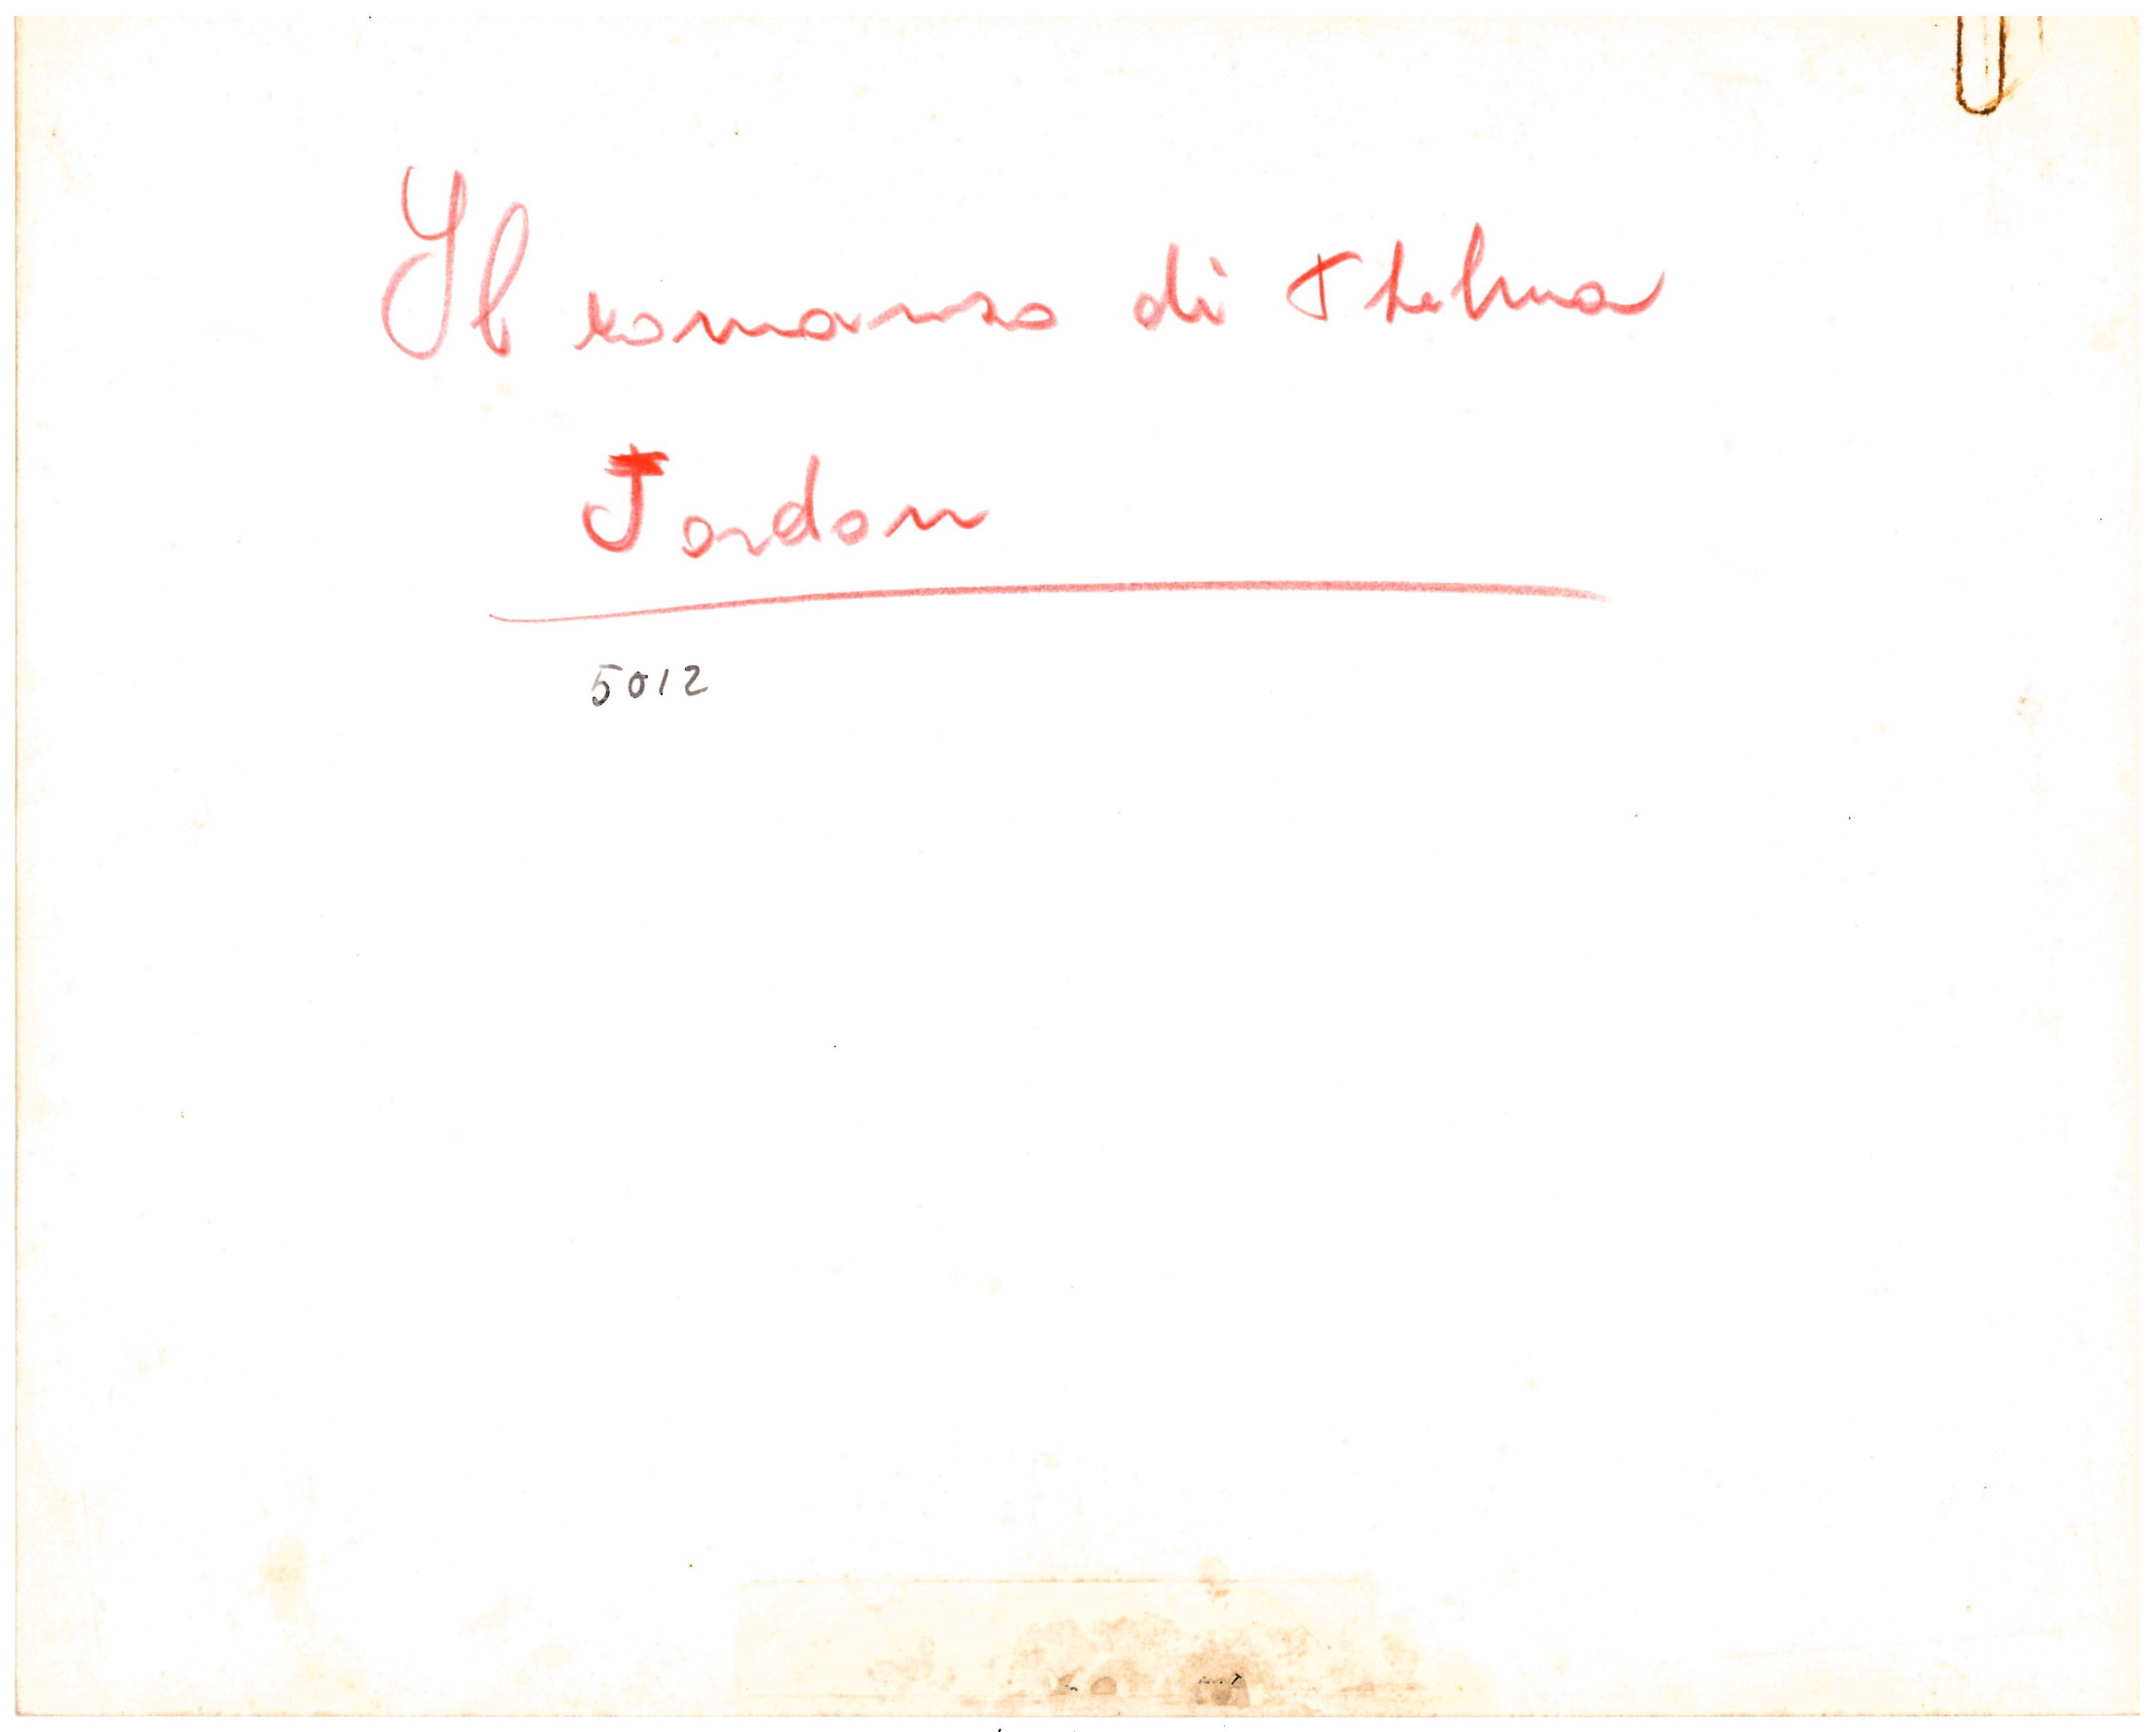 Il romanzo di Thelma
Jordon
5012